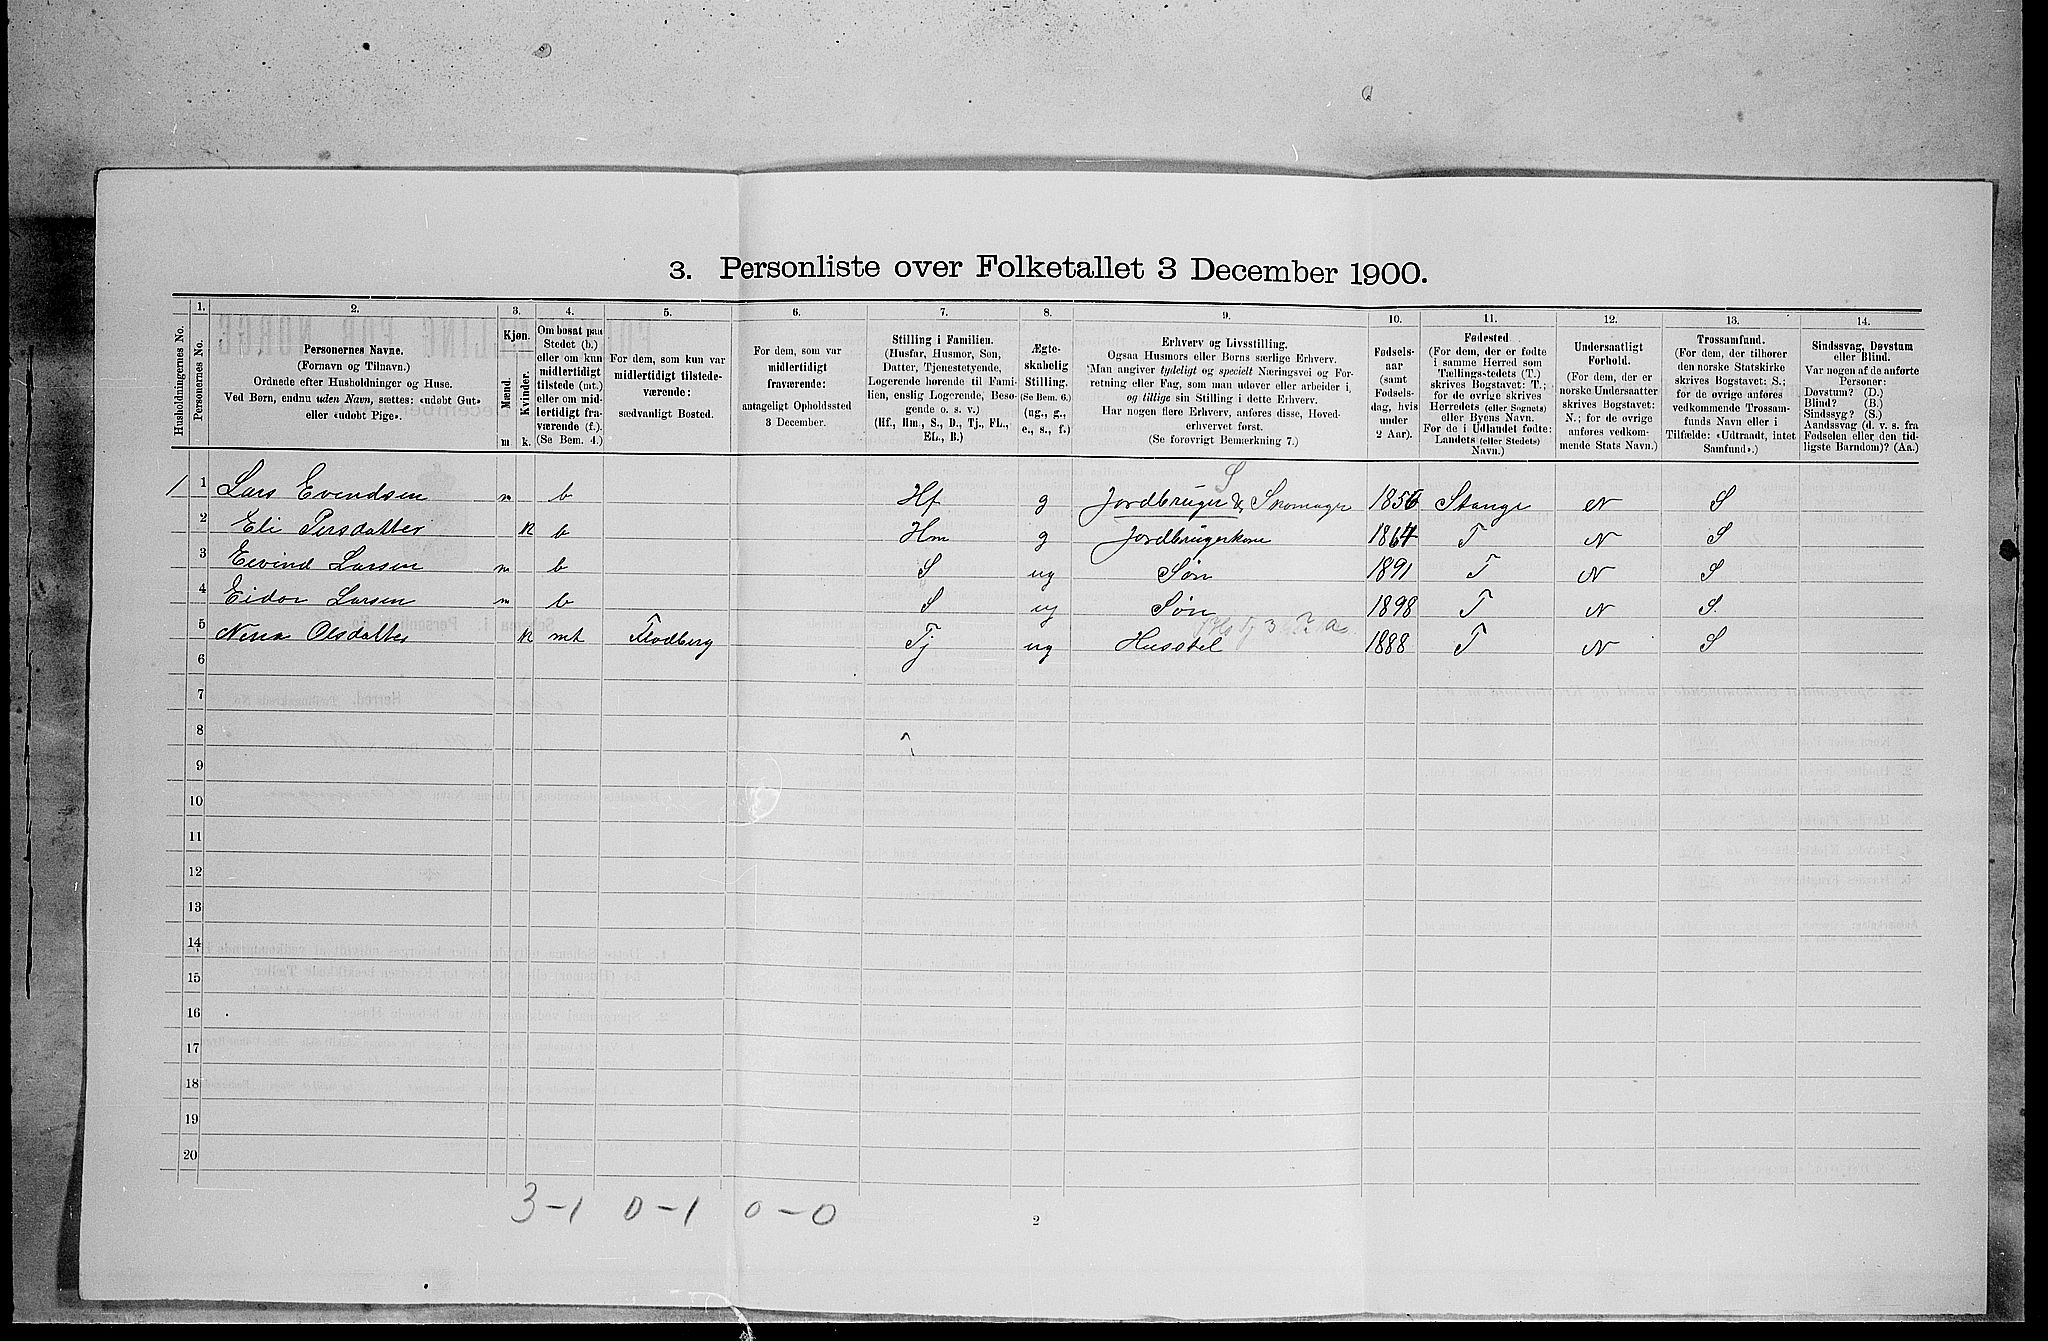 3. Personliste over Folketallet 3 December 1900.
1. 2. 3. 4. 5. 6. 7. 8. 9. 10. 11. 12. 13. 14.
Husholdningernes No.
Personernes No.
Personernes Navne.
(Fornavn og Tilnavn.)
Ordnede efter Husholdninger og Huse.
Ved Børn, endnu uden Navn, sættes: «udøbt Gut»
eller «udøbt Pige».
Kjøn.
Mænd.
Kvinder.
m k.
Om bosat paa
Stedet (b.)
eller om kun
midlertidigt
tilstede (mt.)
eller om mid-
lertidigt fra-
værende (f.).
(Se Bem. 4.)
For dem, som kun var
midlertidigt tilstede-
værende:
sædvanligt Bosted.
For dem, som var
midlertidigt
fraværende:
antageligt Opholdssted
3 December.
Stilling i Familien.
(Husfar, Husmor, Søn,
Datter, Tjenestetyende,
Logerende hørende til Fami-
lien, enslig Logerende, Besø-
gende o. s. v.)
(Hf., Hm., S., D., Tj., FL.,
EL., B.)
Ægte-
skabelig
Stilling.
(Se Bem. 6.)
(ug., g.,
e., s., f.)
Erhverv og Livsstilling.
Ogsaa Husmors eller Børns særlige Erhverv.
Man angiver tydeligt og specielt Næringsvei og For-
retning eller Fag, som man udover eller arbeider i,
og tillige sin Stilling i dette Erhverv.
Har nogen flere Erhverv, anføres disse, Hoved-
erhvervet først.
(Se forøvrigt Bemerkning 7.)
Fødsels-
aar
(samt
Fødsels-
dag, hvis
under
2 Aar).
Fødested
(For dem, der er fødte
i samme Herred som
Tællingsstedets (T.)
skrives Bogstavet: T.;
for de øvrige skrives
Herredets (eller Sognets)
eller Byens Navn.
For de i Udlandet fødte:
Landets (eller Stedets)
Navn.)
Undersaatligt
Forhold.
(For dem, der er
norske Undersaatter
skrives Bogstavet:
N.; for de øvrige
anføres vedkom-
mende Stats Navn.)
Trossamfund.
(For dem, der tilhører
den norske Statskirke
skrives Bogstavet: S.;
for de øvrige anføres
vedkommende Trossam-
funds Navn eller i
Tilfælde: «Udtraadt, intet
Samfund».)
Sindssvag, Døvstum
eller Blind.
Var nogen af de anførte
Personer:
Døvstum? (D.)
Blind? (B.)
Sindssyg? (S.)
Aandssvag (d. v. s. fra
Fødselen eller den tid-
ligste Barndom)? (Aa.)
S
1 1 Lars Evendsen m b Hf g Jordbruger & Skomager 1856 Stange N S
2 Eli Persdatter k b Hm g Jordbrugerkone 1864 T N S
3 Eivind Larsen m b S ug Søn 1891 T N S
4 Eidor Larsen m b S ug Søn 1898 T N S.
5 Nena Olsdatter k mt Flodberg Tj ug Husstel 1888 T N S
6
7
8
9
10
11
12
13
14
15
16
17
18
19
20
3-1 0-1 0-0
2